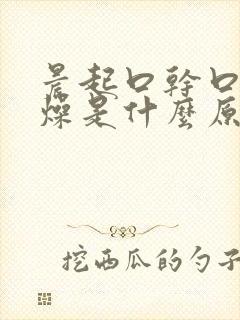 晨起口幹口
燥是什麼原
挖西瓜的勺子